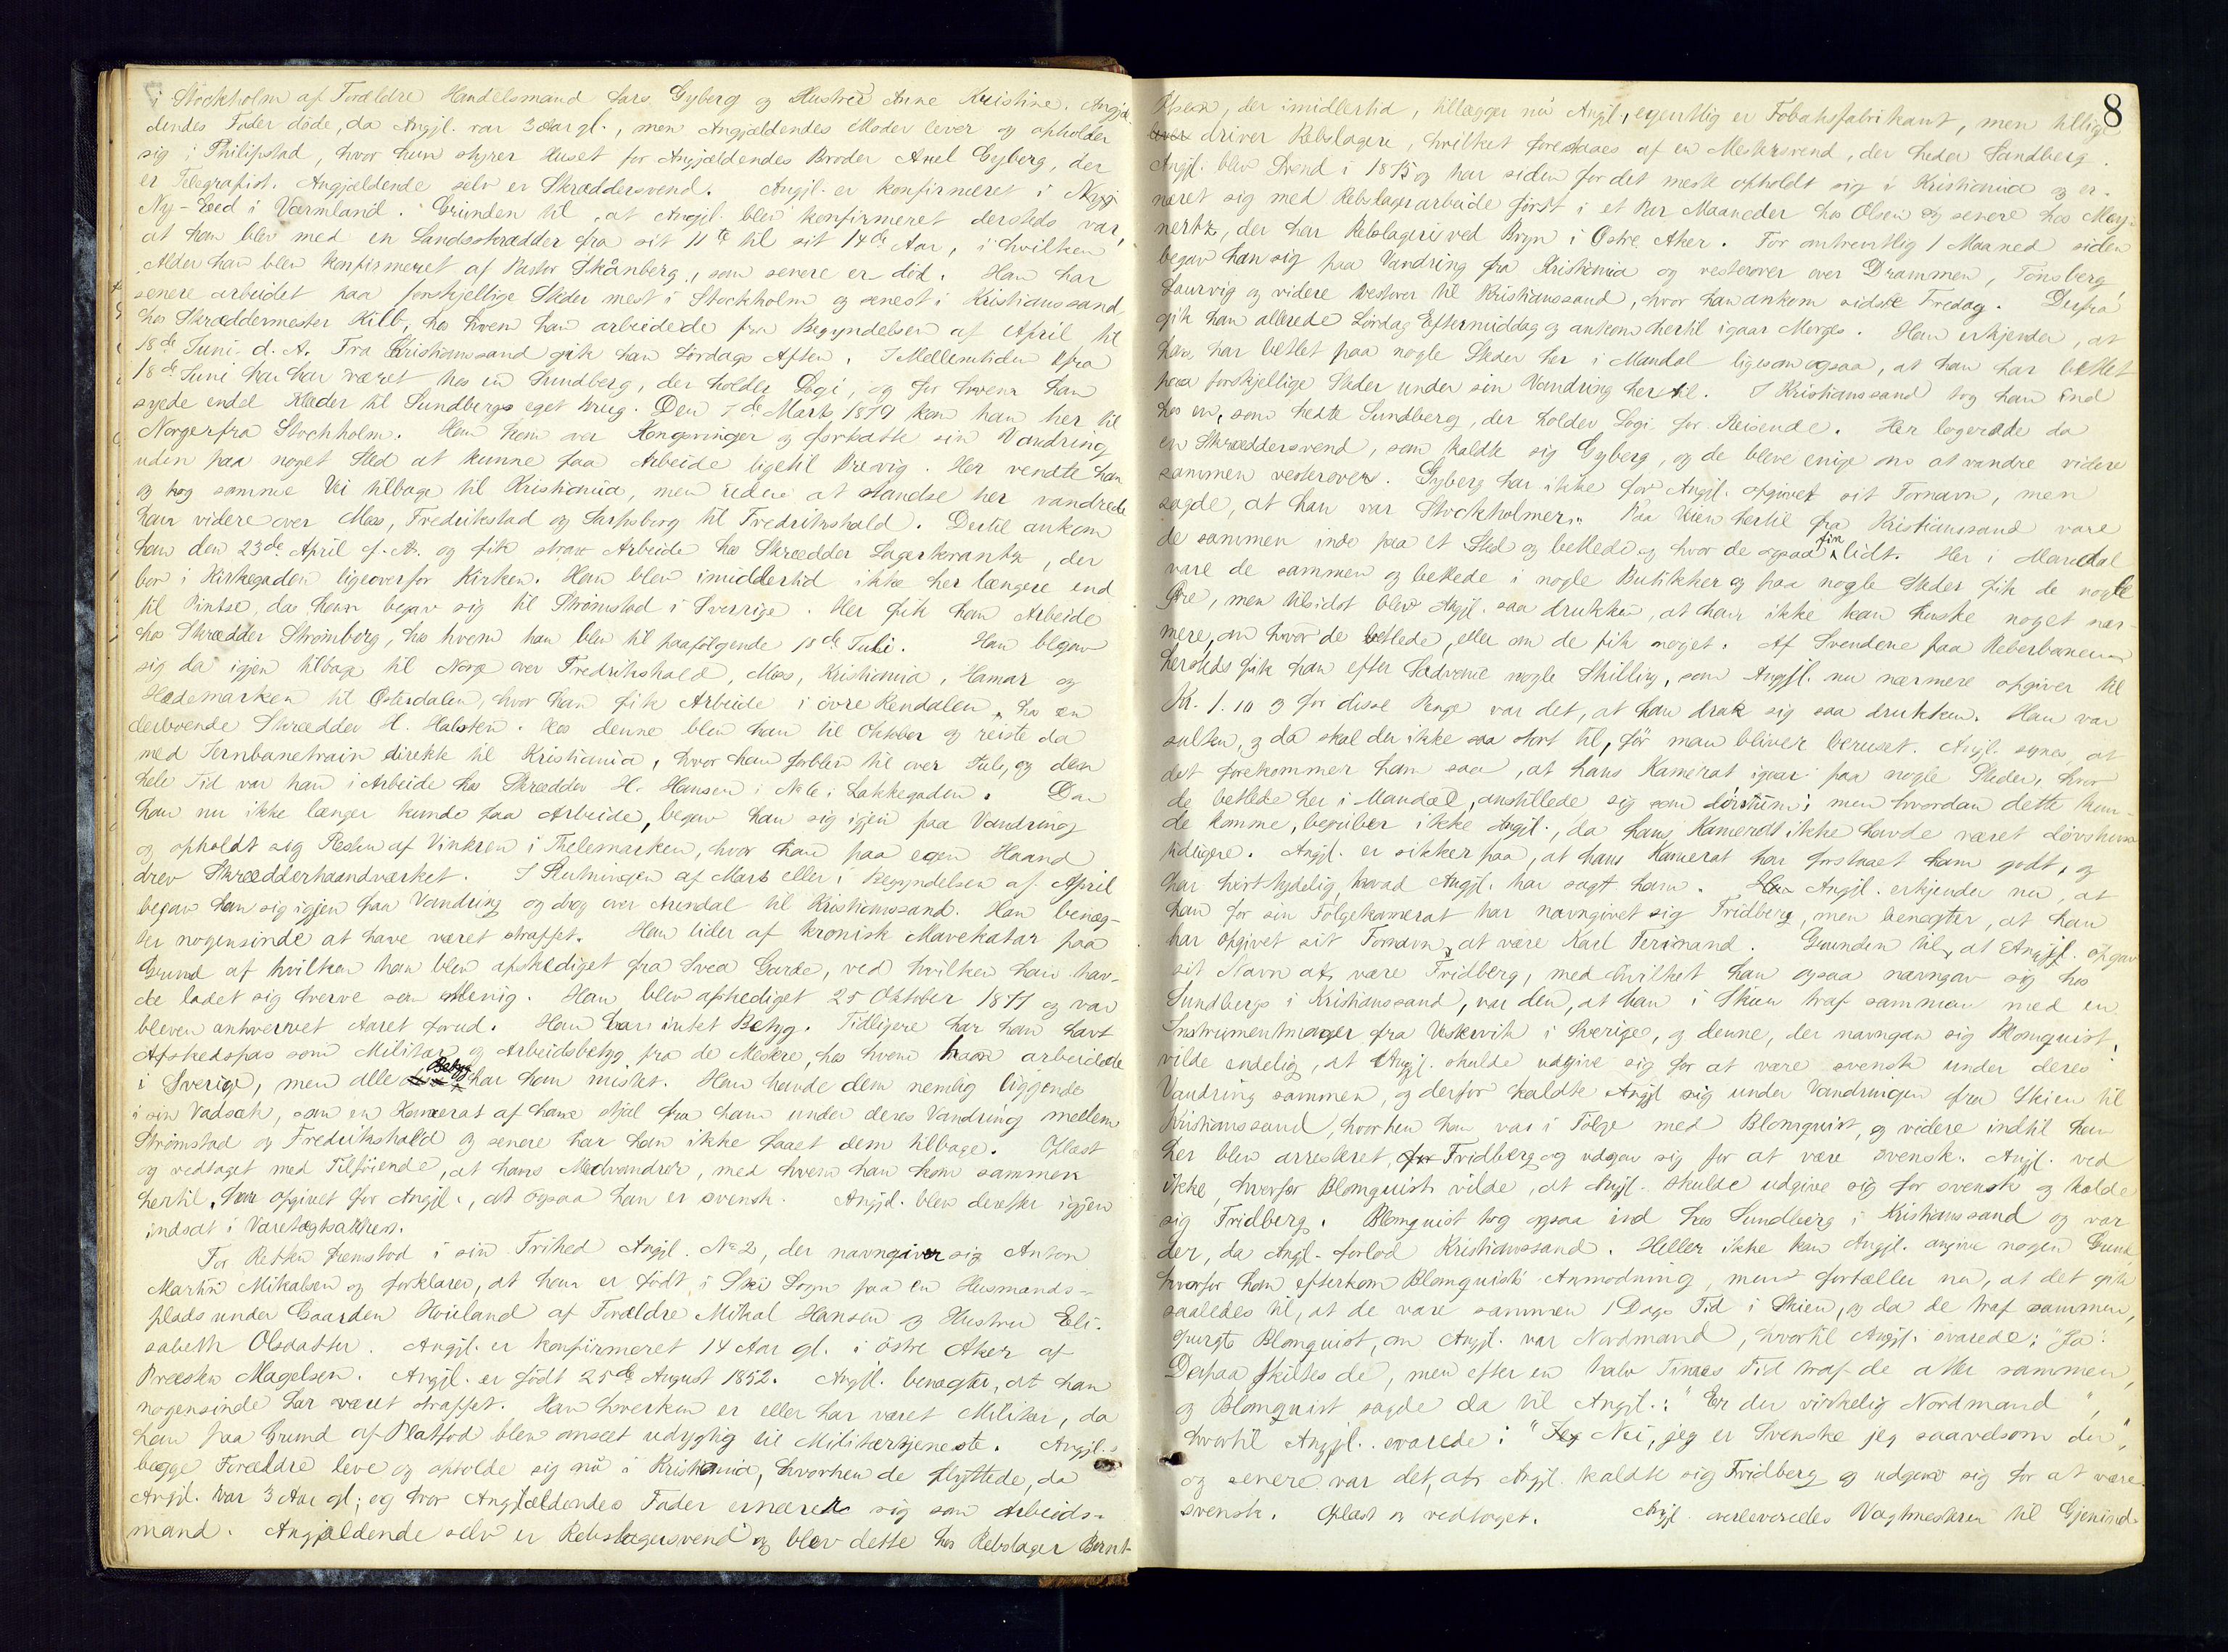 i Stockholm af Forældre Handelsmand Lars Gyberg og Hustru Anne Kristine. Angjæl-
dendes Fader döde, da Angjl. var 3 Aar gl., men Angjældendes Moder lever og opholder
sig i Philipstad, hvor hun styrer Huset for Angjældendes Broder Axel Gyberg, der
er Telegrafist. Angjældende selv er Skræddersvend. Angjl. er konfirmeret i
Ny-Eed i Värmland. Grunden til, at Angjl. blev konfirmeret dersteds var,
at han blev med en Landsskrædder fra sit 11te til sit 14de Aar, i hvilken
Alder han blev konfirmeret af Pastor Skånberg, som senere er död. Han har
senere arbeidet paa forskjellige Steder mest i Stockholm og senest i Kristianssand,
hos Skræddermester Kilb, hos hvem han arbeidede fra Begyndelsen af April til
18de Juni d. A. Fra Kristianssand gik han Lördags Aften. I Mellemtiden fra
18de Juni har han været hos en Sundberg, der holder Logi, og for hvem han
syede endel Klæder til Sundbergs eget Brug. Den 7de Marts 1879 kom han her til
Norge fra Stockholm. Han kom over Kongsvinger og fortsatte sin Vandring
uden paa noget Sted at kunne faa Arbeide ligetil Brevig. Her vendte han
og tog samme Vei tilbage til Kristiania, men uden at standse her vandrede
han videre over Moss, Fredrikstad og Sarpsborg til Fredrikshald. Dertil ankom
han den 23de April f. A. og fik strax Arbeide hos Skrædder Lagerkrantz, der
bor i Kirkegaden ligeoverfor Kirken. Han blev imidlertid ikke her længere end
til Pintse, da han begav sig til Strömstad i Sverrige. Her fik han Arbeide
hos Skrædder Strömberg, hos hvem han blev til paafölgende 18de Juli. Han begav
sig da igjen tilbage til Norge over Fredrikshald, Moss, Kristiania, Hamar og
Hedemarken til Österdalen, hvor han fik Arbeide i övre Rendalen hos en
derboende Skrædder H. Halsten. Hos denne blev han til Oktober og reiste da
med Jernbanetrain direkte til Kristiania, hvor han forblev til over Jul, og den
hele Tid var han i Arbeide hos Skrædder H. Hansen i No 6 i Lakkegaden. Da
han nu ikke længer kunde faa Arbeide, begav han sig igjen paa Vandring
og opholdt sig Resten af Vinteren i Thelemarken, hvor han paa egen Haand
drev Skrædderhaandværket. I Slutningen af Marts eller i Begyndelsen af April
begav han sig igjen paa Vandring og drog over Arendal til Kristianssand. Han benæg-
ter nogensinde at have været straffet. Han lider af kronisk Mavekatar paa
Grund af hvilken han blev afskediget fra Svea Garde, ved hvilken han hav-
de ladet sig hverve som Menig. Han blev afskediget 25 Oktober 1877 og var
bleven anhvervet Aaret forud. Han har intet Betyg. Tidligere har han havt
Afskedspas som Militær og Arbeidsbetyg fra de Mestere, hos hvem han arbeidede
i Sverige, men alle Betyg har han mistet. Han havde dem nemlig liggende
i sin Vadsæk, som en Kamerat af ham stjal fra ham under deres Vandring mellem
Strömstad og Fredrikshald og senere har han ikke faaet dem tilbage. Oplæst
og vedtaget med Tilföiende, at hans Medvandrer, med hvem han kom sammen
hertil, har opgivet for Angjl., at ogsaa han er svensk. Angjl. blev derefter igjen
indsat i Varetægtsarrest.
For Retten fremstod i sin Frihed Angjl. No 2, der navngiver sig Anton
Martin Mikalsen og forklarer, at han er födt i Ski Sogn paa en Husmands-
plads under Gaarden Haaland af Forældre Mikal Hansen og Hustru Eli-
sabeth Olsdatter. Angjl. er konfirmeret 14 Aar gl. i östre Aker af
Præsten Magelsen. Angjl. er födt 25de August 1852. Angjl. benægter, at han
nogensinde har været straffet. Han hverken er eller har været Militær, da
han paa Grund af Platfod blev anseet udygtig til Militærtjeneste. Angjl.s
begge Forældre leve og opholde sig nu i Kristiania, hvorhen de flyttede, da
Angjl. var 3 Aar gl., og hvor Angjældendes Fader ernærer sig som Arbeids-
mand. Angjældende selv er Rebslagersvend og blev dette hos Rebslager Bernt
Olsen, der imidlertid, tillægger nu Angjl., egentlig er Tobaksfabrikant, men tillige 8
driver Rebslageri, hvilket forestaaes af en Mestersvend, der heder Sandberg.
Angjl. blev Svend i 1875 og har siden for det meste opholdt sig i Kristiania og er-
næret sig med Rebslagerarbeide först i et Par Maaneder hos Olsen og senere hos Mey-
nertz, der har Rebslageri ved Bryn i Østre Aker. For omtrentlig 1 Maaned siden
begav han sig paa Vandring fra Kristiania og vesterover over Drammen, Tönsberg,
Laurvig og videre vestover til Kristianssand, hvor han ankom sidste Fredag. Derfra
gik han allerede Lördag Eftermiddag og ankom hertil igaar Morges. Han erkjender, at
han har betlet paa nogle Steder her i Mandal ligesom ogsaa, at han har betlet
paa forskjellige Steder under sin Vandring hertil. I Kristianssand tog han ind
hos en, som hedte Sundberg, der holder Logi for Reisende. Her logerede da
en Skræddersvend, som kaldte sig Gyberg, og de bleve enige om at vandre videre
sammen vesterover. Gyberg har ikke for Angjl. opgivet sit Fornavn, men
sagde, at han var Stockholmer. Paa Veien hertil fra Kristianssand vare
de sammen inde paa et Sted og betlede og hvor de ogsaa fik lidt. Her i Mandal
vare de sammen og betlede i nogle Butikker og paa nogle Steder fik de nogle
Öre, men tilsidst blev Angjl. saa drukken, at han ikke kan huske noget nær-
mere, om hvor de betlede, eller om de fik noget. Af Svendene paa Reberbanen
hersteds fik han efter Sædvane nogle Skilling, som Angjl. nu nærmere opgiver til
Kr. 1.10 og for disse Penge var det, at han drak sig saa drukken. Han var
sulten, og da skal der ikke saa stort til, för man bliver beruset. Angjl. synes, at
det forekommer ham saa, at hans Kamerat igaar paa nogle Steder, hvor
de betlede her i Mandal, anstillede sig som dövstum; men hvordan dette kun-
de komme, begriber ikke Angjl., da hans Kamerat ikke havde været dövstum
tidligere. Angjl. er sikker paa, at hans Kamerat har forstaaet ham godt, og
har hört tydelig, hvad Angjl. har sagt ham. Angjl. erkjender nu, at
han for sin Fölgekamerat har navngivet sig Fridberg, men benægter, at han
har opgivet sit Fornavn at være Karl Ferdinand. Grunden til, at Angjl. opgav
sit Navn at være Fridberg, med hvilket han ogsaa navngav sig hos
Sundbergs i Kristianssand, var den, at han i Skien traf sammen med en
Instrumentmager fra Vestervik i Sverige, og denne, der navngav sig Blomquist,
vilde endelig, at Angjl. skulde udgive sig for at være svensk under deres
Vandring sammen, og derfor kaldte Angjl sig under Vandringen fra Skien til
Kristianssand, hvorhen han var i Fölge med Blomquist, og videre indtil han
her blev arresteret, Fridberg og udgav sig for at være svensk. Angjl. ved
ikke, hvorfor Blomquist vilde, at Angjl. skulde udgive sig for svensk og kalde
sig Fridberg. Blomquist tog ogsaa ind hos Sundberg i Kristianssand og var
der, da Angjl. forlod Kristianssand. Heller ikke kan Angjl. angive nogen Grund,
hvorfor han efterkom Blomquists Anmodning, men fortæller nu, at det gik
saaledes til, at de vare sammen 1 Dags Tid i Skien, og da de traf sammen,
spurgte Blomquist, om Angjl. var Nordmand, hvortil Angjl. svarede: "Ja".
Derpaa skiltes de, men efter en halv Times Tid traf de atter sammen,
og Blomquist sagde da til Angjl.: "Er du virkelig Nordmand",
hvortil Angjl. svarede: "Nei, jeg er Svenske jeg saavelsom du",
og senere var det, at Angjl. kaldte sig Fridberg og udgav sig for at være
svensk. Oplæst og vedtaget. Angjl. overleveredes Vagtmesteren til Gjenind-